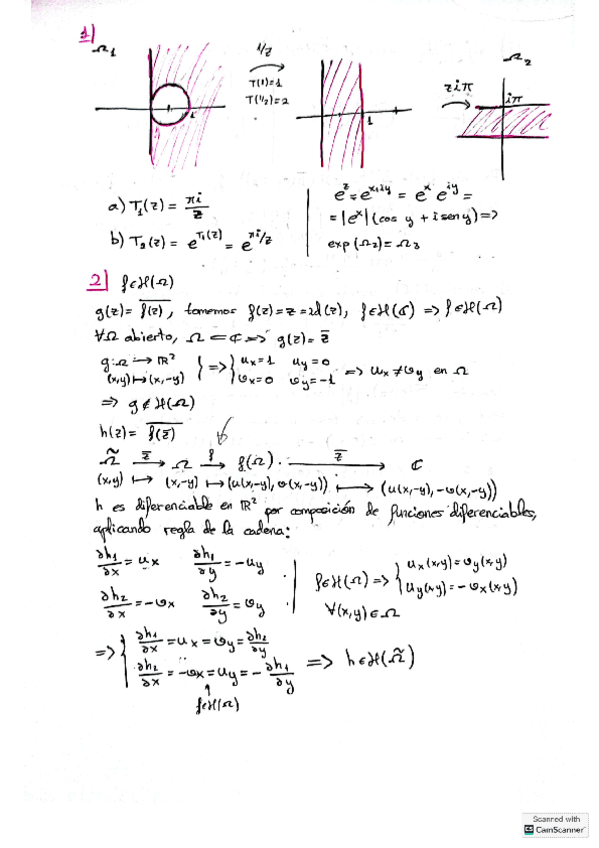 1)
Ω₁
1/z
T(1)=1
T(1/2)=2
1
1
Ω₂
ziπ
iπ
a) T₁(z) = πi/z
b) T₂(z) = e^{T₁(z)} = e^{πi/z}
e^z = e^{x+iy} = e^x e^{iy} =
= |e^x| (cos y + i sen y) =>
exp(Ω₂) = Ω₃
2) f∈H(Ω)
g(z) = \overline{f(z)}, tomemos f(z)=z=id(z), f∈H(ℂ) => f∈H(Ω)
∀Ω abierto, Ω ⊂ ℂ => g(z) = \overline{z}
g:Ω → ℝ²
(x,y) ↦ (x,-y)
} => { u_x=1 u_y=0
v_x=0 v_y=-1
=> u_x ≠ v_y en Ω
=> g ∉ H(Ω)
h(z) = \overline{f(\overline{z})}
\tilde{Ω} →^{\overline{z}} Ω →^{f} f(Ω) →^{\overline{z}} ℂ
(x,y) ↦ (x,-y) ↦ (u(x,-y), v(x,-y)) ↦ (u(x,-y), -v(x,-y))
h es diferenciable en ℝ² por composición de funciones diferenciables,
aplicando regla de la cadena:
∂h₁/∂x = u_x ∂h₁/∂y = -u_y
∂h₂/∂x = -v_x ∂h₂/∂y = v_y
f∈H(Ω) => { u_x(x,y) = v_y(x,y)
u_y(x,y) = -v_x(x,y)
∀(x,y)∈Ω
=> { ∂h₁/∂x = u_x = v_y = ∂h₂/∂y
∂h₂/∂x = -v_x = u_y = -∂h₁/∂y
=> h∈H(\tilde{Ω})
f∈H(Ω)
Scanned with
CamScanner